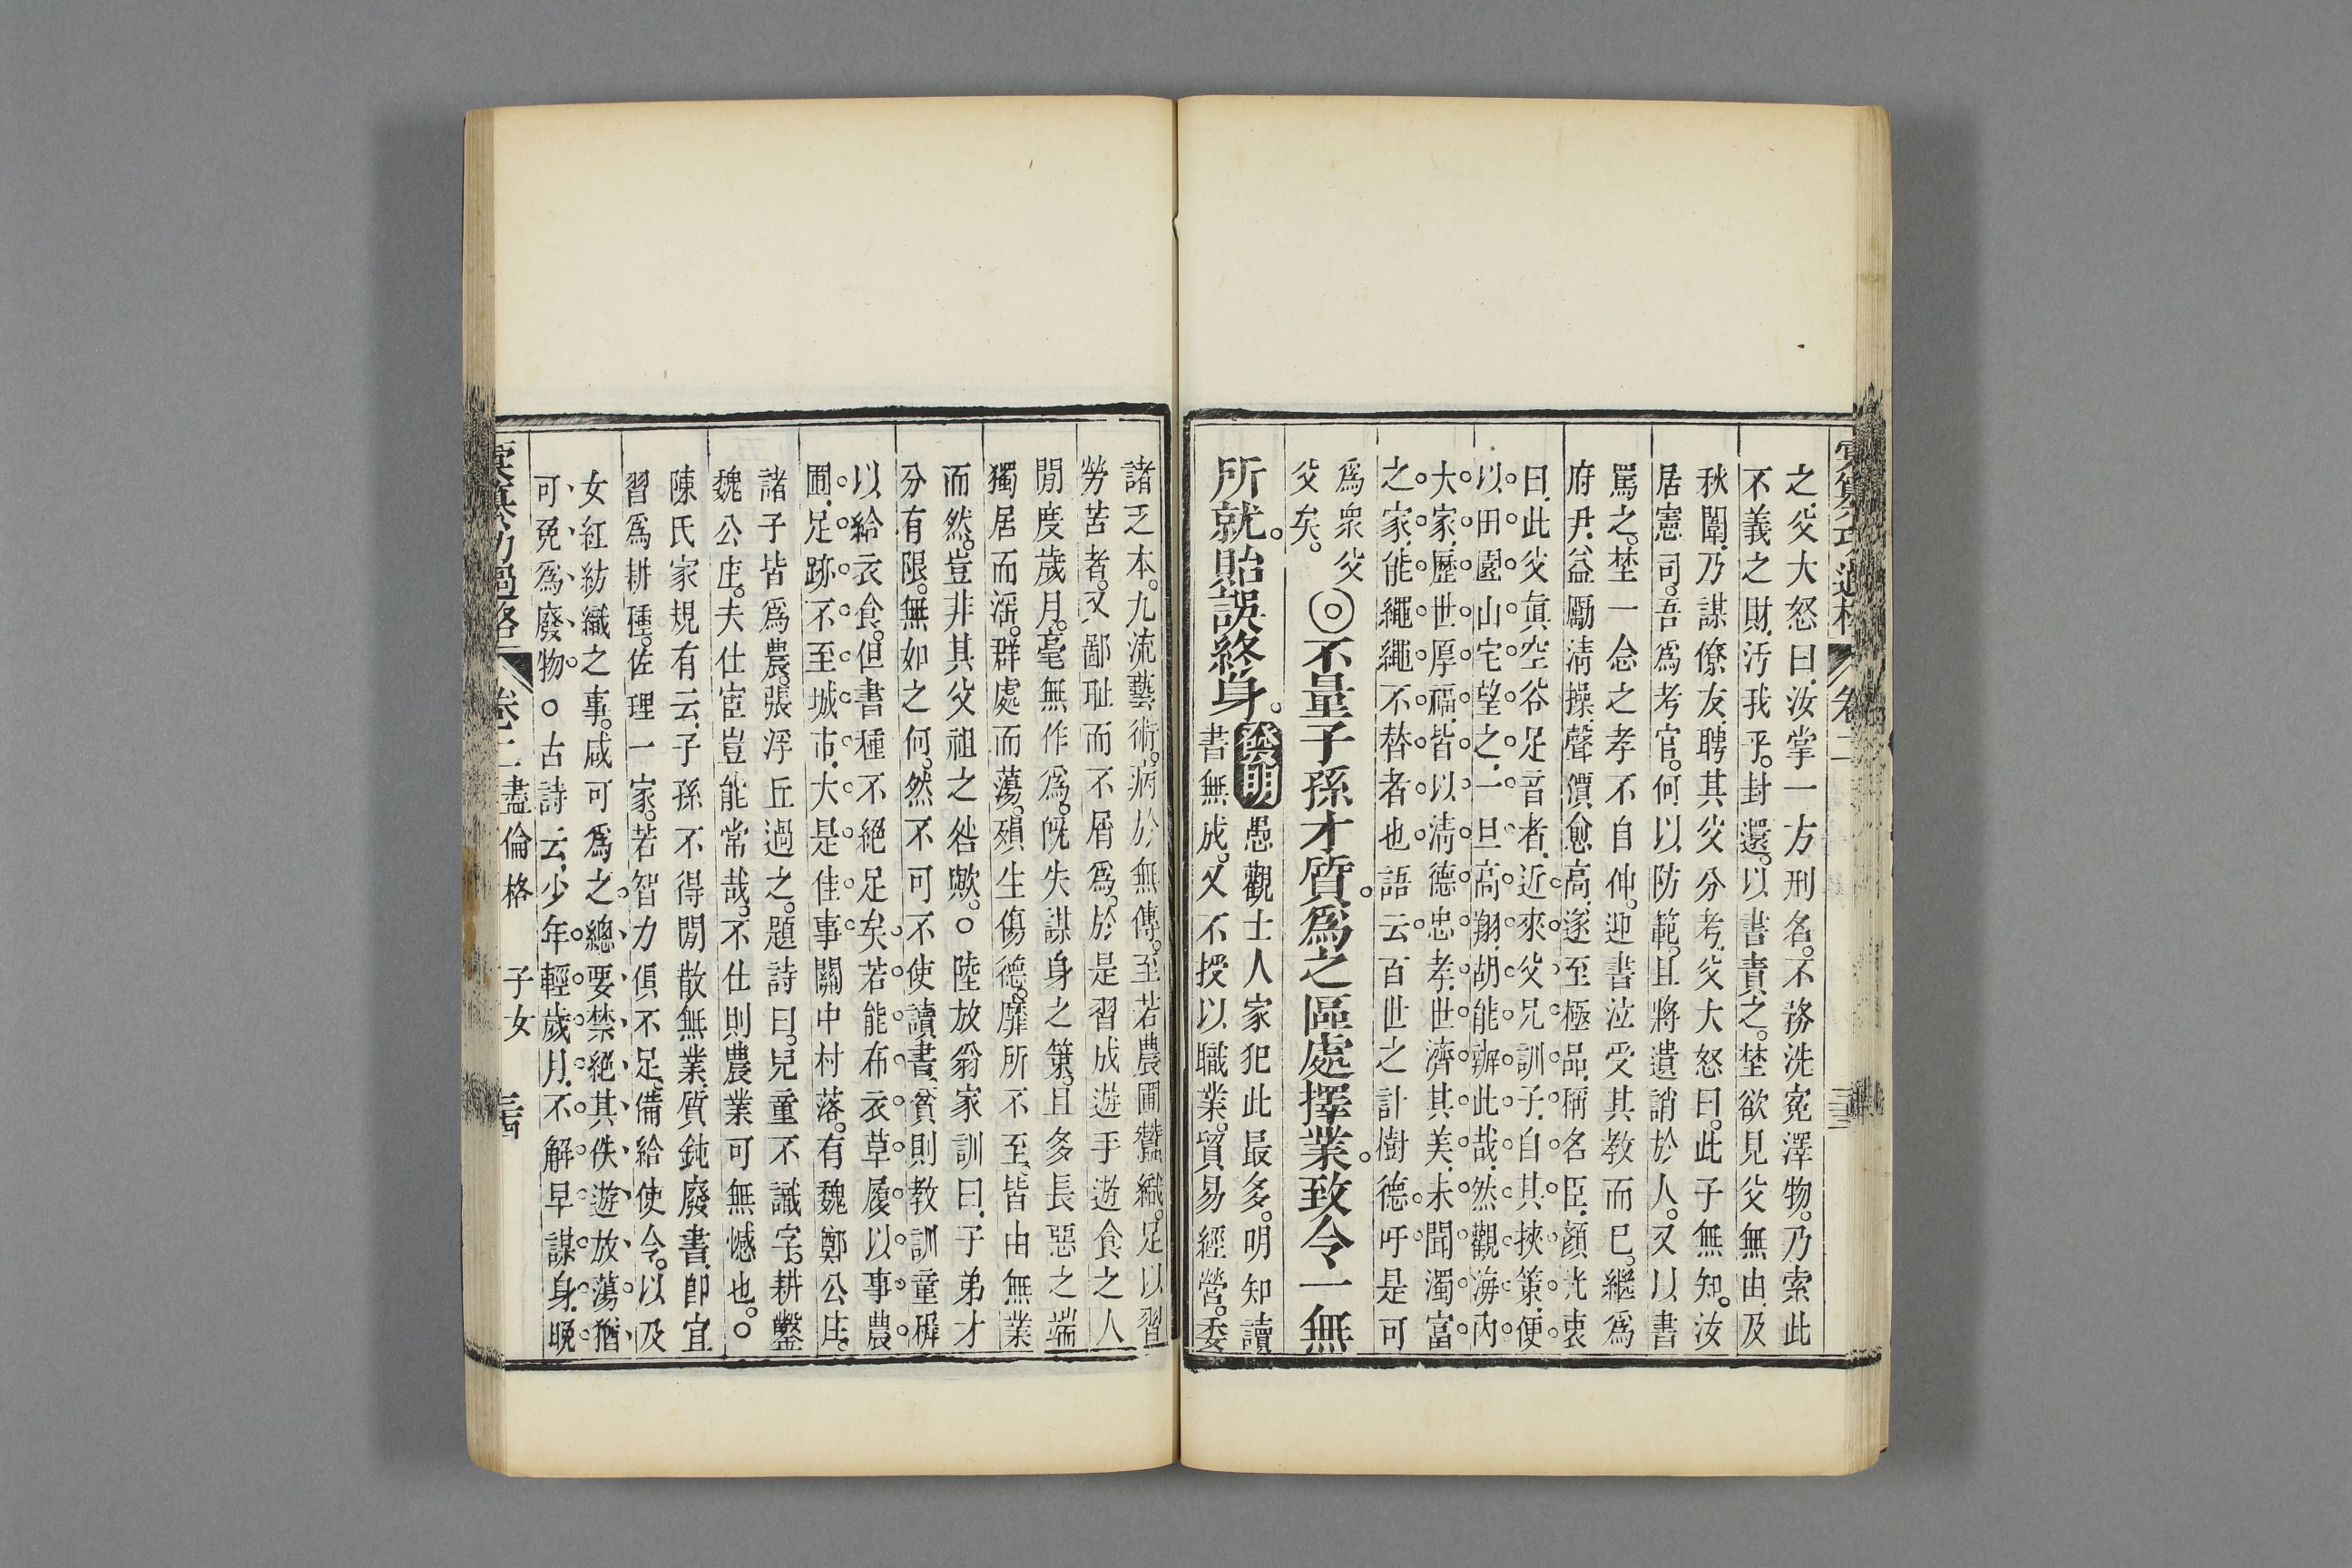 彙纂功過格 卷二 三十三
之父大怒曰汝掌一方刑名不務洗寃澤物乃索此
不義之財汚我乎封還以書責之埜欲見父無由及
秋闈乃謀僚友聘其父分考父大怒曰此子無知汝
居憲司吾爲考官何以防範且將遺誚於人又以書
罵之埜一念之孝不自伸迎書泣受其教而已繼爲
府尹益勵淸操聲價愈高遂至極品稱名臣顏光衷
曰此父眞空谷足音者近來父兄訓子自其挾策便
以田園山宅望之一旦高翔胡能辦此哉然觀海內
大家歷世厚福皆以淸德忠孝世濟其美未聞濁富
之家能繩繩不替者也語云百世之計樹德吁是可
爲衆父
父矣
◎不量子孫才質爲之區處擇業致令一無
所就貽誤終身
發明
愚觀士人家犯此最多明知讀
書無成又不授以職業貿易經營委
諸乏本九流藝術病於無傳至若農圃蠶織足以習
勞苦者又鄙耻而不屑爲於是習成遊手遊食之人
閒度歲月毫無作爲旣失謀身之策且多長惡之端
獨居而滛群處而蕩殞生傷德靡所不至皆由無業
而然豈非其父祖之咎歟○陸放翁家訓曰子弟才
分有限無如之何然不可不使讀書貧則教訓童穉
以給衣食但書種不絕足矣若能布衣草履以事農
圃足跡不至城市大是佳事關中村落有魏鄭公庄
諸子皆爲農張浮丘過之題詩曰兒童不識字耕鑿
魏公庄夫仕宦豈能常哉不仕則農業可無憾也○
陳氏家規有云子孫不得閒散無業質鈍廢書卽宜
習爲耕種佐理一家若智力俱不足備給使令以及
女紅紡織之事咸可爲之總要禁絕其佚遊放蕩猶
可免爲廢物○古詩云少年輕歲月不解早謀身晚
彙纂功過格 卷二 盡倫格 子女 三十四